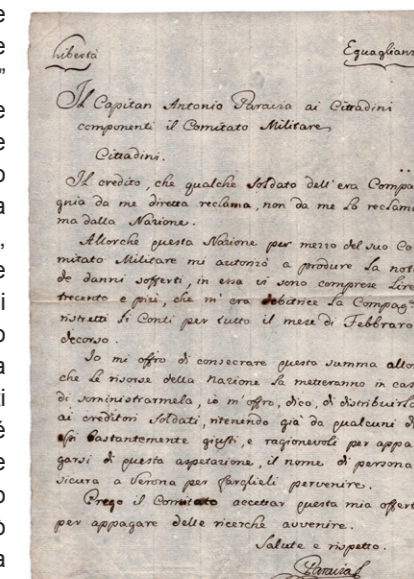 Libertà Eguaglianz
Il Capitan Antonio Paravia ai Cittadini
componenti il Comitato Militare
Cittadini.
Il credito, che qualche Soldato dell'era Compa
gnia da me diretta reclama, non da me lo reclama
ma dalla Nazione.
Allorchè questa Nazione per mezzo del suo Co
mitato Militare mi autorizò a produrre la nota
de danni sofferti, in essa vi sono comprese Lire
trecento e più, che m'era debitrice la Compagª
ristretti li Conti per tutto il mese di Febbraro
decorso.
Io mi offro di consecrare questa summa allor
che le risorse della Nazione la metteranno in caso
di somministrarmela, io m'offro, dico, di distribuirla
ai creditori Soldati, ritenendo già da qualcuni di
essi bastantemente giusti, e ragionevoli per appa
garsi di questa aspetazione, il nome di persona
sicura a Verona per farglieli pervenire.
Prego il Comitato accettar questa mia offert
per appagare delle ricerche avvenire.
Salute e rispetto.
Paravia